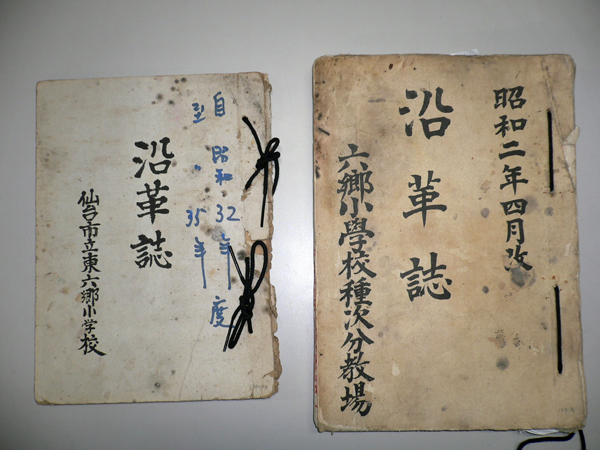 昭和二年四月改
沿革誌
六郷小學校種次分教場
自昭和32年度
至〃35年
沿革誌
仙台市立東六郷小学校